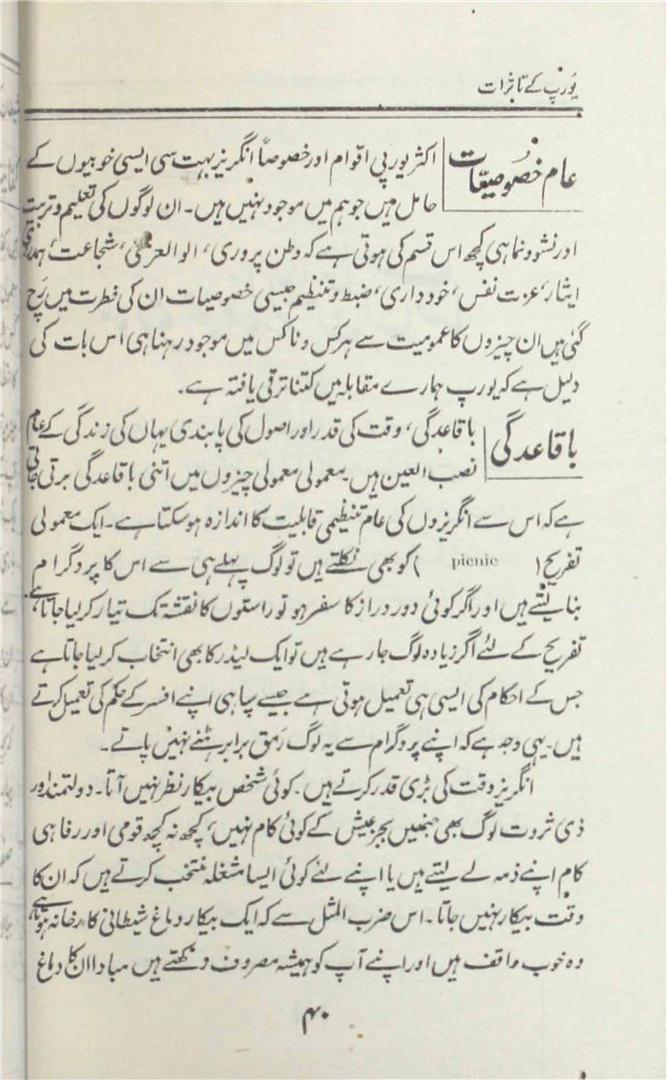 یورپ کے تاثرات
عام خصوصیات
اکثر یورپی اقوام اور خصوصاً انگریز بہت سی ایسی خوبیوں کے
حامل ہیں جو ہم میں موجود نہیں ہیں۔ ان لوگوں کی تعلیم و تربیت
اور نشوونما ہی کچھ اس قسم کی ہوتی ہے کہ وطن پروری، الوالعزمی، شجاعت، ہمدردی
ایثار، عزت نفس، خودداری، ضبط و تنظیم جیسی خصوصیات ان کی فطرت میں رَچ
گئی ہیں ان چیزوں کا عمومیت سے ہر کس و ناکس میں موجود رہنا ہی اس بات کی
دلیل ہے کہ یورپ ہمارے مقابلہ میں کتنا ترقی یافتہ ہے۔
باقاعدگی
باقاعدگی، وقت کی قدر اور اصول کی پابندی یہاں کی زندگی کے عام
نصب العین ہیں۔ معمولی معمولی چیزوں میں اتنی باقاعدگی برتی جاتی
ہے کہ اس سے انگریزوں کی عام تنظیمی قابلیت کا اندازہ ہوسکتا ہے۔ ایک معمولی
تفریح ( picnic ) کو بھی نکلتے ہیں تو لوگ پہلے ہی سے اس کا پروگرام
بنا لیتے ہیں اور اگر کوئی دور دراز کا سفر ہو تو راستوں کا نقشہ تک تیار کرلیا جاتا ہے۔
تفریح کے لئے اگر زیادہ لوگ جا رہے ہیں تو ایک لیڈر کا بھی انتخاب کرلیا جاتا ہے
جس کے احکام کی ایسی ہی تعمیل ہوتی ہے جیسے سپاہی اپنے افسر کے حکم کی تعمیل کرتے
ہیں۔ یہی وجہ ہے کہ اپنے پروگرام سے یہ لوگ رمق برابر ہٹنے نہیں پاتے۔
انگریز وقت کی بڑی قدر کرتے ہیں۔ کوئی شخص بیکار نظر نہیں آتا۔ دولتمند اور
ذی ثروت لوگ بھی جنھیں بجز عیش کے کوئی کام نہیں، کچھ نہ کچھ قومی اور رفاہی
کام اپنے ذمہ لے لیتے ہیں یا اپنے لئے کوئی ایسا مشغلہ منتخب کرتے ہیں کہ ان کا
وقت بیکار نہیں جاتا۔ اس ضرب المثل سے کہ ایک بیکار دماغ شیطانی کارخانہ ہوتا ہے
وہ خوب واقف ہیں اور اپنے آپ کو ہمیشہ مصروف رکھتے ہیں مبادا ان کا دماغ
۴۰